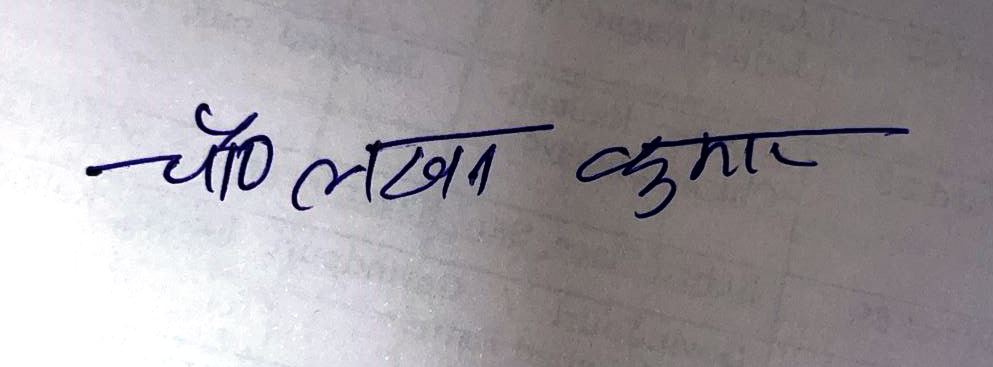 चौ० लखन कुमार